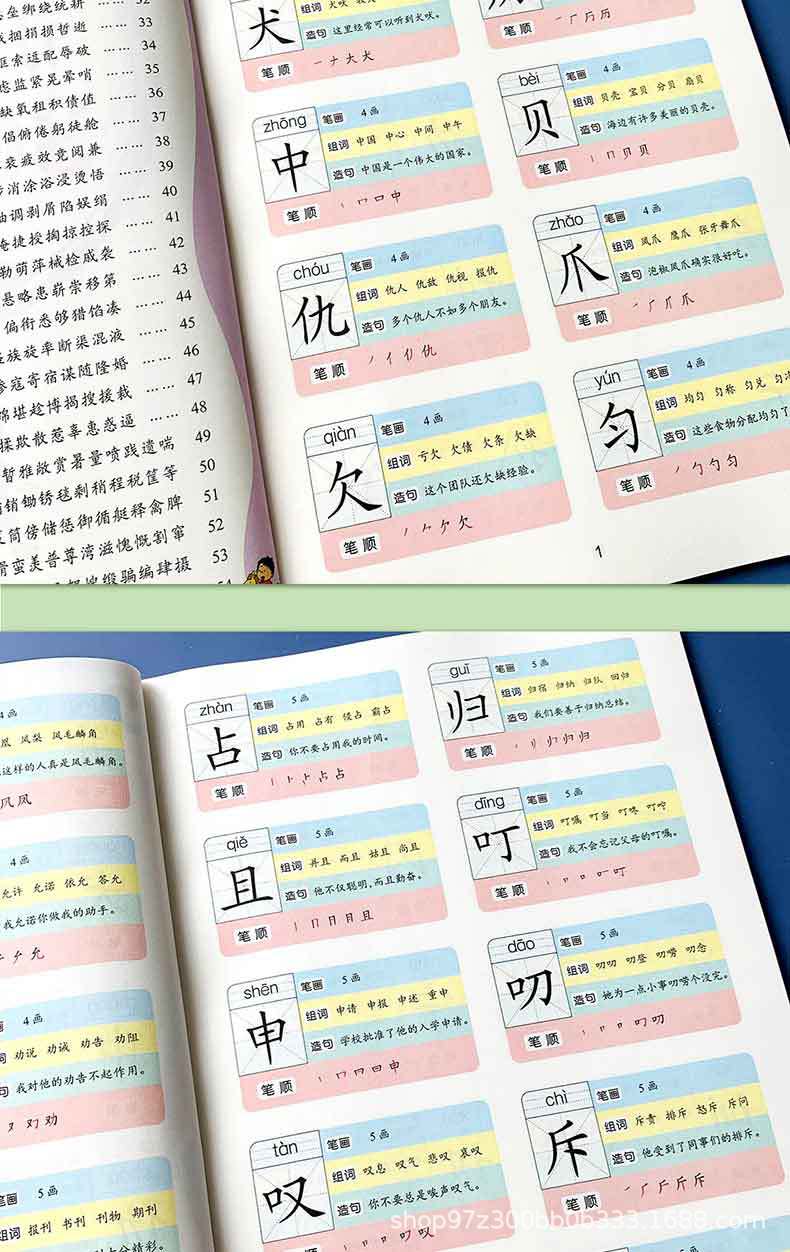 垒绑绕统耕 …… 32
捆捐损哲逝 …… 33
索逛配辱破 …… 34
监紧晃晕哨 …… 35
缺氧租积债值 …… 36
倡俯倦躬徒舱 …… 37
衰疲效竞阅兼 …… 38
消涂浴浸烫悟 …… 39
调剥屑陷娱绢 …… 40
捷授掏掠控探 …… 41
勒萌萍械检戚袭 …… 42
悬略患崭崇移第 …… 43
偏衔悉够猎馅凑 …… 44
族旋率断渠混液 …… 45
寇寄宿谋随隆婚 …… 46
堪趁博揭搜援裁 …… 47
揉欺散惹辜惠惑逼 …… 48
暂雅敞赏暑量喷践遗喘 49
销锄锈毯剩稍程税筐等 50
筒傍储惩御循艇释禽脾 51
蛮羡普尊湾滋愧慨割窜 52
缎骗编肆摄 53
犬
造句 这里经常可以听到犬吠。
笔顺 一ナ大犬
丆历历
zhōng 笔画 4画
中
组词 中国 中心 中间 中午
造句 中国是一个伟大的国家。
笔顺 丨口口中
bèi 笔画 4画
贝
组词 贝壳 宝贝 分贝 扇贝
造句 海边有许多美丽的贝壳。
笔顺 丨冂贝贝
chóu 笔画 4画
仇
组词 仇人 仇敌 仇视 报仇
造句 多个仇人不如多个朋友。
笔顺 丿亻仇仇
zhǎo 笔画 4画
爪
组词 凤爪 鹰爪 张牙舞爪
造句 泡椒凤爪确实很好吃。
笔顺 爪爪
qiàn 笔画 4画
欠
组词 亏欠 欠债 欠条 欠缺
造句 这个团队还欠缺经验。
笔顺 丿𠂊欠欠
yún 笔画 4画
匀
组词 均匀 匀称 匀兑
造句 这些食物分配均匀了
笔顺 丿勹勻匀
1
4画
凤梨 凤毛麟角
这样的人真是凤毛麟角。
几凤凤
4画
允许 允诺 依允 答允
我允诺你做我的助手。
允
4画
劝说 劝诫 劝告 劝阻
我对他的劝告不起作用。
又劝劝
笔画 5画
组词 报刊 书刊 刊物 期刊
zhàn 笔画 5画
占
组词 占用 占有 侵占 霸占
造句 你不要占用我的时间。
笔顺 丨卜占占占
guī 笔画 5画
归
组词 归宿 归纳 归队 回归
造句 我们要善于归纳总结。
笔顺 丨刂归归归
qiě 笔画 5画
且
组词 并且 而且 姑且 尚且
造句 他不仅聪明，而且勤奋。
笔顺 丨冂月且且
dīng 笔画 5画
叮
组词 叮嘱 叮当 叮咚 叮咛
造句 我不会忘记父母的叮嘱。
笔顺 丨口口叮叮
shēn 笔画 5画
申
组词 申请 申报 申述 重申
造句 学校批准了他的入学申请。
笔顺 丨口日日申
dāo 笔画 5画
叨
组词 叨叨 叨登 叨唠 叨念
造句 她为一点小事叨唠个没完。
笔顺 丨口口叨叨
tàn 笔画 5画
叹
组词 叹息 叹气 悲叹 哀叹
造句 你不要总是唉声叹气。
笔顺 丨口口叹叹
chì 笔画 5画
斥
组词 斥责 排斥 怒斥 斥问
造句 他受到了同事们的排斥。
笔顺 丿厂斤斤斥
shop97z300bb0b333.1688.com